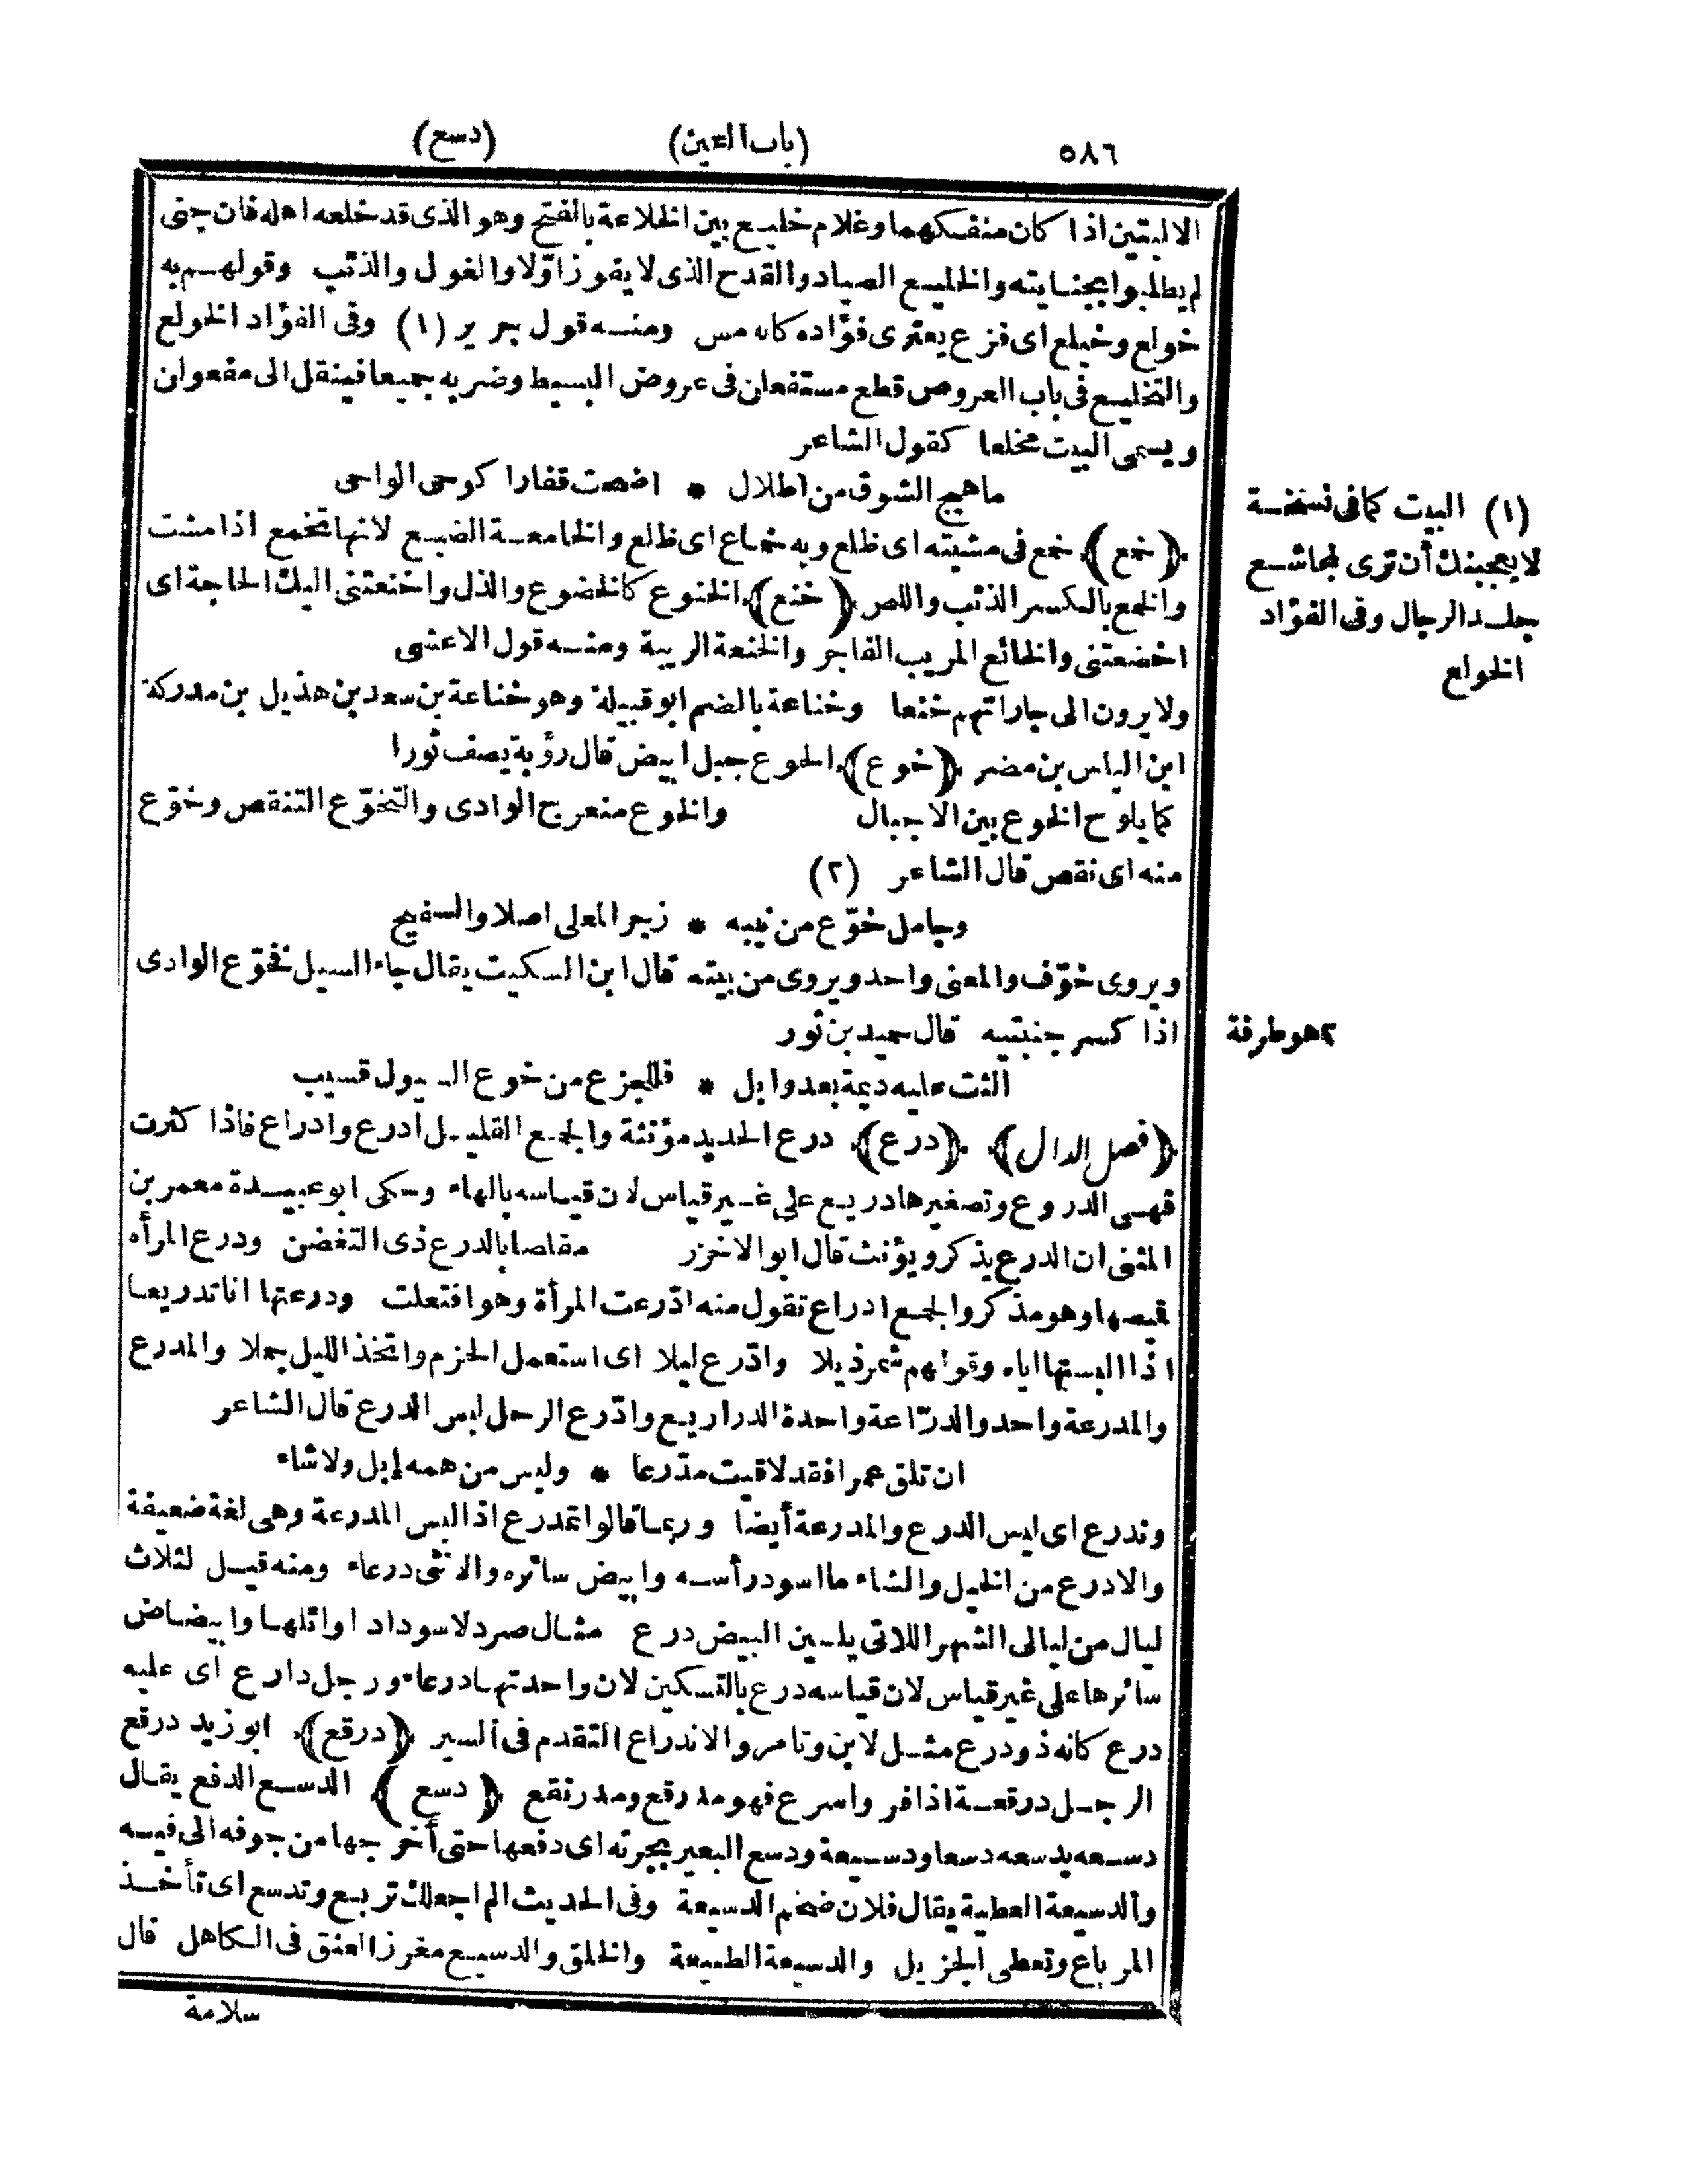 ٥٨٦ (باب العين) (دسع)
الاليتين اذا كان منفكهما وغلام خليع بين الخلاعة بالفتح وهو الذى قد خلعه اهله فان جنى
لم يطلبوا بجنايته والخليع الصياد والقدح الذى لا يفوز اوّلا والغول والذئب وقولهم به
خولع وخيلع اى فزع يعترى فؤاده كانه مس ومنه قول جرير (١) وفى الفؤاد الخولع
والتخليع فى باب العروض قطع مستفعلن فى عروض البسيط وضربه جميعا فينقل الى مفعولن
ويسمى البيت مخلعا كقول الشاعر
ماهيج الشوق من اطلال * اضحت قفارا كوحى الواحى
﴿خمع﴾ خمع فى مشيته اى ظلع وبه خماع اى ظلع والخامعة الضبع لانها تخمع اذا مشت
والخمع بالكسر الذئب واللص ﴿خنع﴾ الخنوع كالخضوع والذل واخنعتنى اليك الحاجة اى
اخضعتنى والخانع المريب الفاجر والخنعة الريبة ومنه قول الاعشى
ولا يرون الى جاراتهم خنعا وخناعة بالضم ابو قبيلة وهو خناعة بن سعد بن هذيل بن مدركة
ابن الياس بن مضر ﴿خوع﴾ الخوع جبل ابيض قال رؤبة يصف ثورا
كما يلوح الخوع بين الاجبال والخوع منعرج الوادى والتخوّع التنقص وخوّع
منه اى نقص قال الشاعر (٢)
وجامل خوّع من نيبه * زجر المعلى اصلا والسفيح
ويروى خوّف والمعنى واحد ويروى من بيته قال ابن السكيت يقال جاء السيل فخوّع الوادى
اذا كسر جنبتيه قال حميد بن ثور
الثت عليه ديمة بعد وابل * فللجزع من خوع السيول قسيب
﴿فصل الدال﴾ ﴿درع﴾ درع الحديد مؤنثة والجمع القليل ادرع وادراع فاذا كثرت
فهى الدروع وتصغيرها دريع على غير قياس لان قياسه بالهاء وحكى ابو عبيدة معمر بن
المثنى ان الدرع يذكر ويؤنث قال ابو الاخزر مقلصا بالدرع ذى التغضن ودرع المرأه
قميصها وهو مذكر والجمع ادراع تقول منه ادّرعت المرأة وهو افتعلت ودرعتها انا تدريعا
اذا البستها اياه وقولهم شمر ذيلا وادّرع ليلا اى استعمل الحزم واتخذ الليل جملا والمدرع
والمدرعة واحد والدرّاعة واحدة الدراريع وادّرع الرحل لبس الدرع قال الشاعر
ان تلق عمرا فقد لاقيت مدّرعا * وليس من همه إبل ولا شاء
وتدرع اى لبس الدرع والمدرعة أيضا وربما قالوا تمدرع اذا لبس المدرعة وهى لغة ضعيفة
والادرع من الخيل والشاء ما اسود رأسه وابيض سائره والانثى درعاء ومنه قيل لثلاث
ليال من ليالى الشهر اللاتى يلين البيض درع مثال صرد لاسوداد اوائلها وابيضاض
سائرها على غير قياس لان قياسه درع بالتسكين لان واحدتها درعاء ورجل دارع اى عليه
درع كانه ذو درع مثل لابن وتامر والاندراع التقدم فى السير ﴿درقع﴾ ابو زيد درقع
الرجل درقعة اذا فر واسرع فهو مدرقع ومدرنقع ﴿دسع﴾ الدسع الدفع يقال
دسعه يدسعه دسعا ودسيعة ودسع البعير بجرته اى دفعها حتى أخرجها من جوفه الى فيه
والدسيعة العطية يقال فلان ضخم الدسيعة وفى الحديث الم اجعلك تربع وتدسع اى تأخذ
المرباع وتعطى الجزيل والدسيعة الطبيعة والخلق والدسيع مغرز العنق فى الكاهل قال
سلامة
(١) البيت كما فى نسخة
لا يعجبنك أن ترى لمجاشع
جلد الرجال وفى الفؤاد
الخولع
٢ هو طرفة